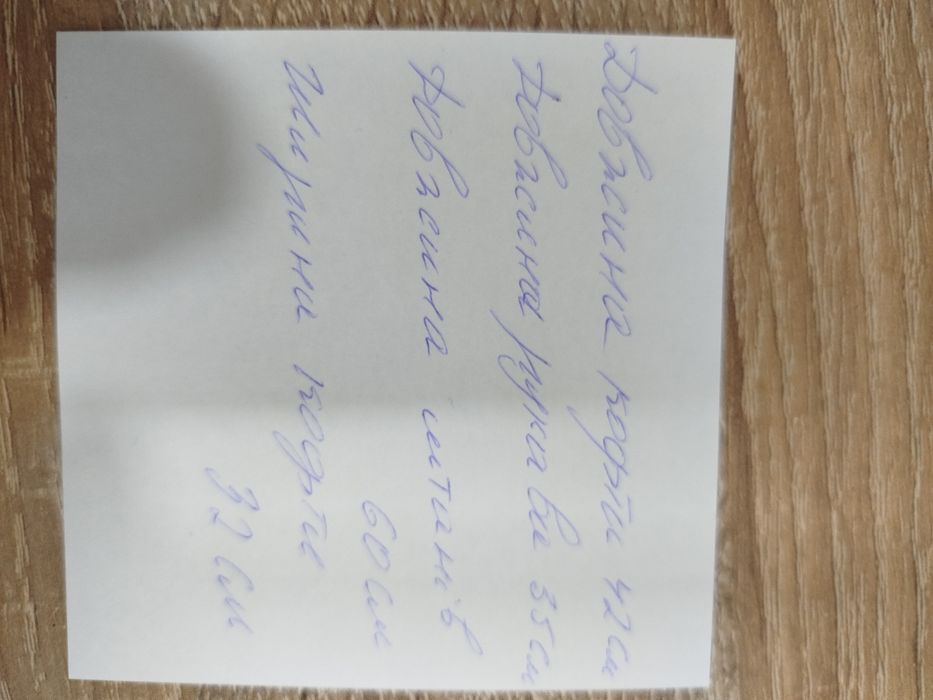 Довжина кофти 42 см
Довжина рукава 35 см
Довжина штанів
60 см
Ширина кофти
32 см